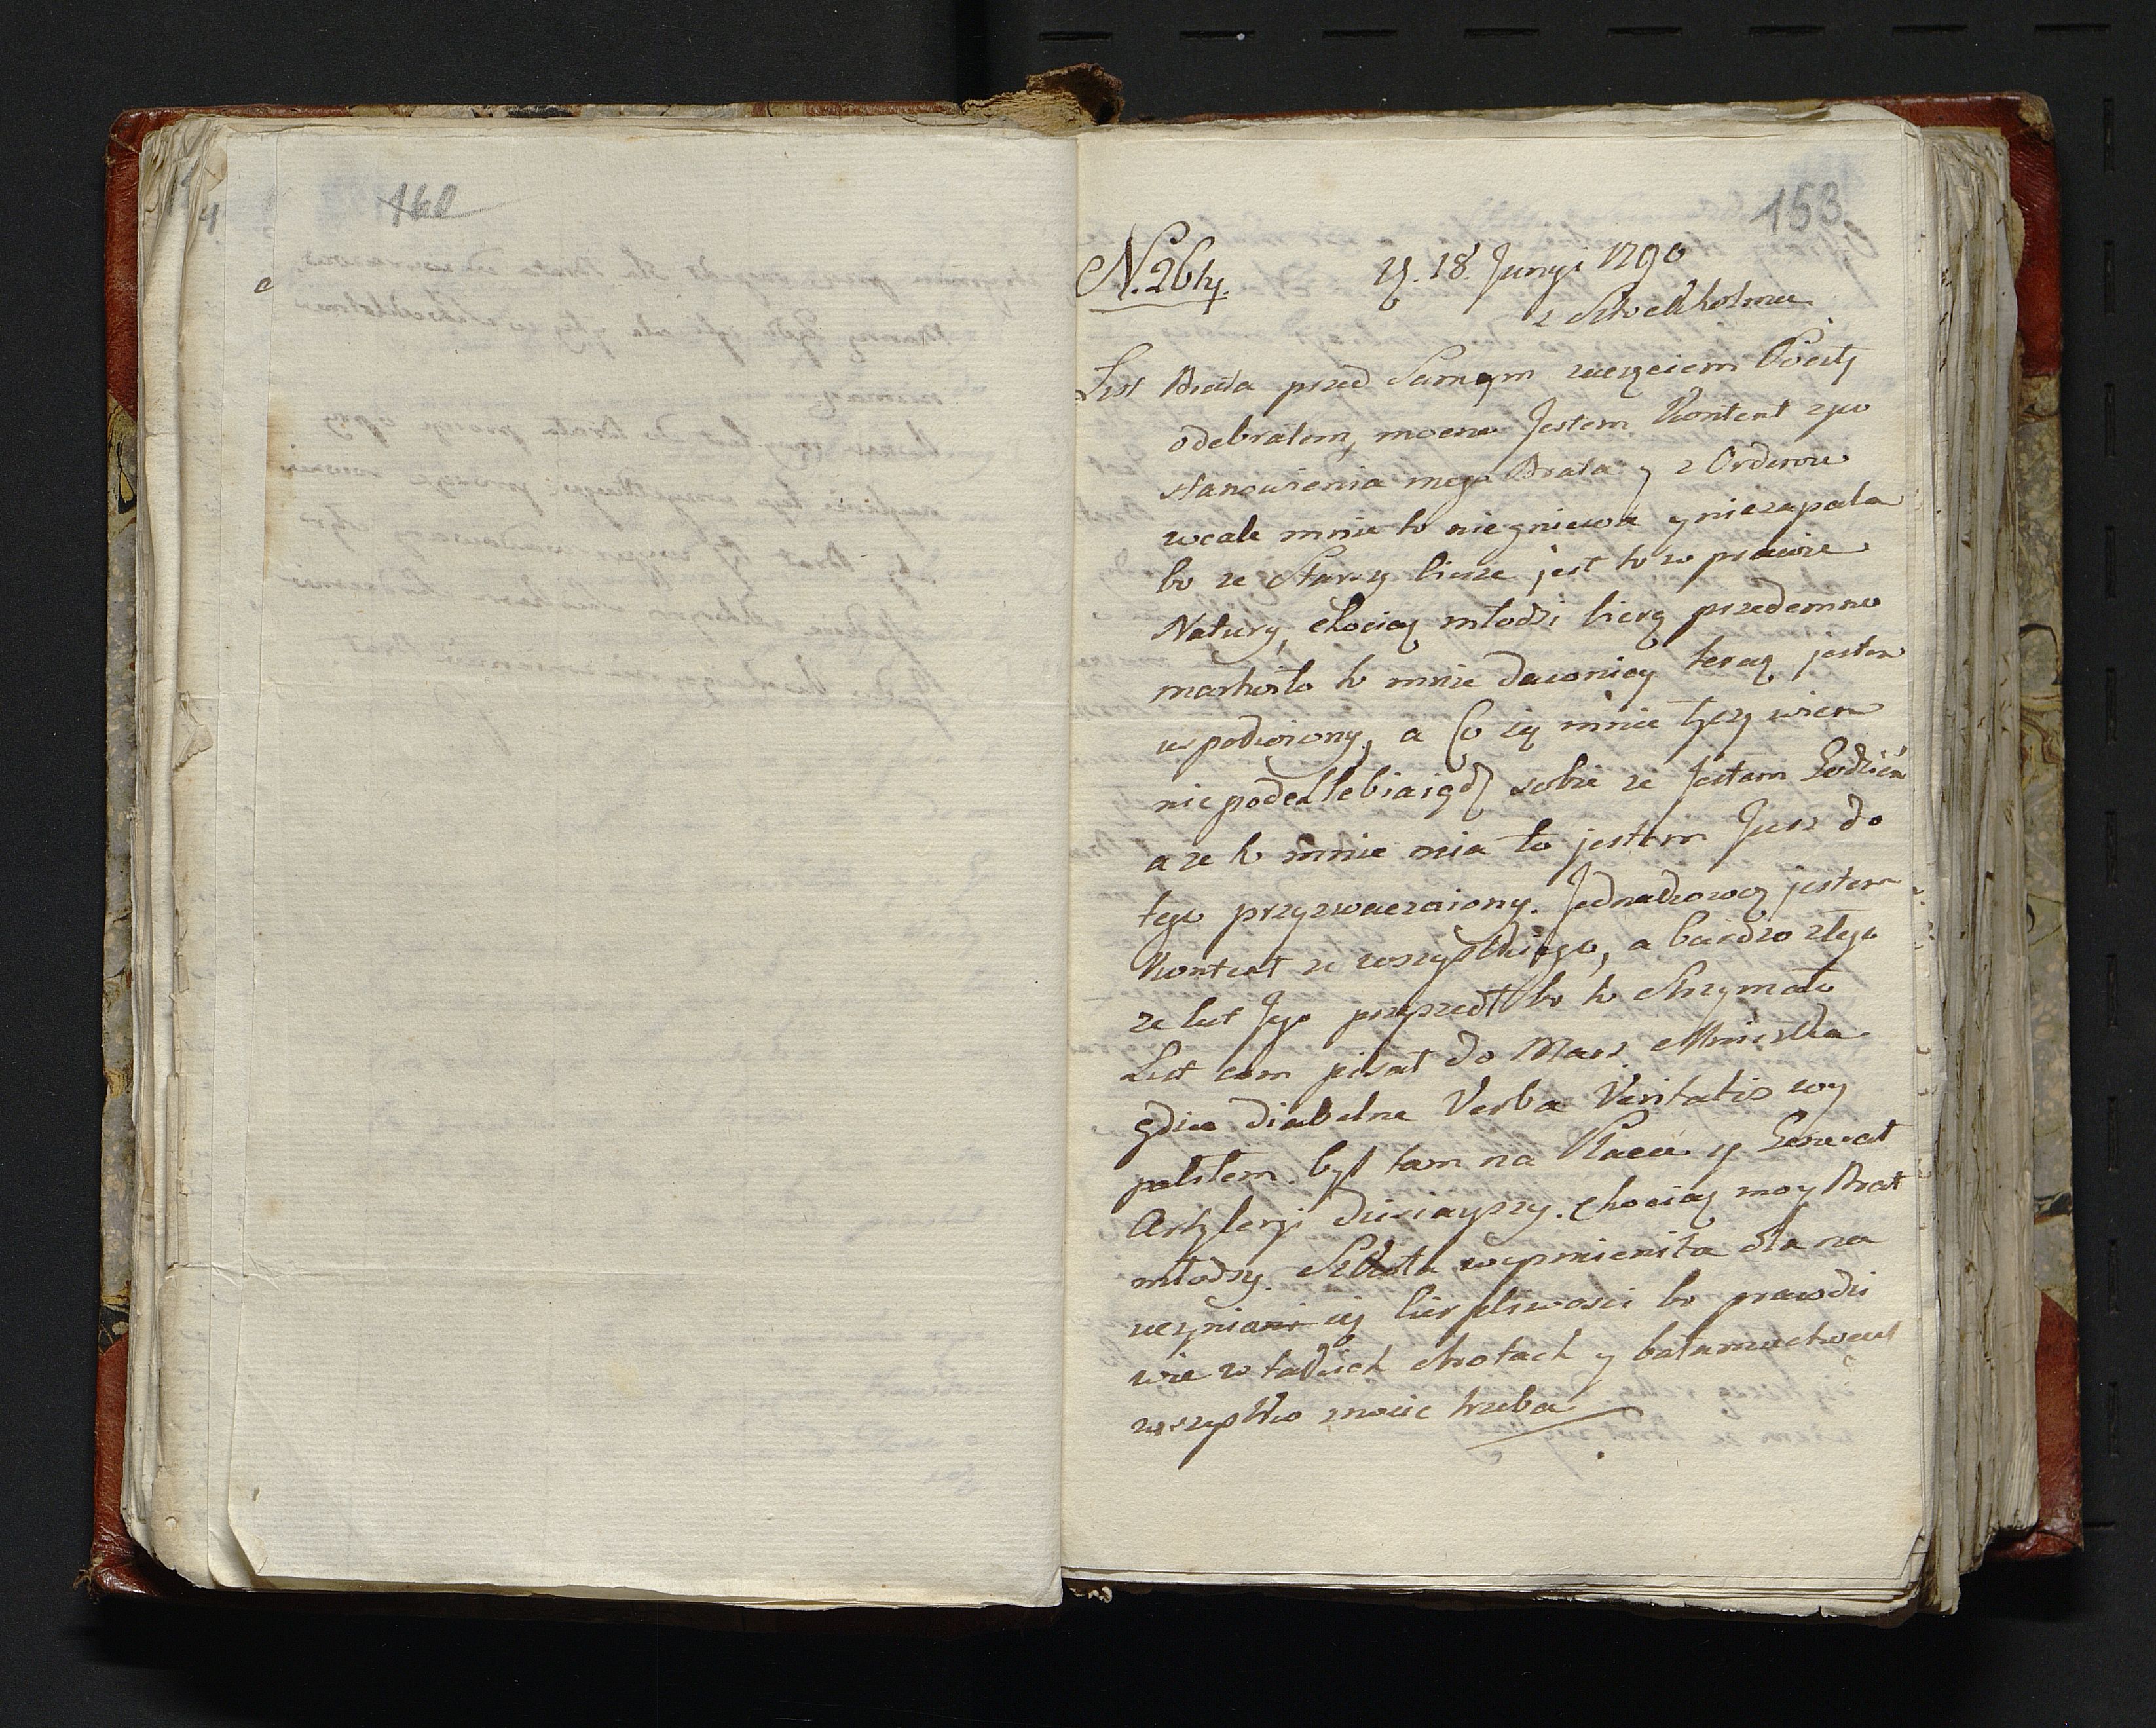 160
153
N. 26ty.
d. 18 Junyi 1790
z Sztockholmu
List Brata przed Samym zaczęciem Poczty
odebrałem, mocno Jestem Kontent zpo
stanowienia mego Brata y z Orderow
wcale mnie to niegniewa y niezapala
bo ze Starszy bierze jest to w prawie
Natury, chociaz młodzi biorą przedemno
martwiło to mnie dawniey teraz jestem
uspokoiony, a Co się mnie tyczy wiem
niepodchlebiaiąc sobie ze Jestem Godzien
a ze to mnie mia to jestem Jusz do
tego przyzwaczaiony. Jednakowoz jestem
Kontent ze wszystkiego, a bardzo złego
ze list Jego przyszedł bo to strzymało
List com pisał do Mar: Mniszka
gdzie diabelne Verba Veritatis wy
paliłem. był tam na Placu y Generał
Artylerji dzisiayszy. chociaz moy Brat
młodszy. Szkoła wyśmienita dla na
uczynia się cierpliwosci bo prawdzi
wie w takich obrotach y bałamuctwach
wszystko znosic trzeba